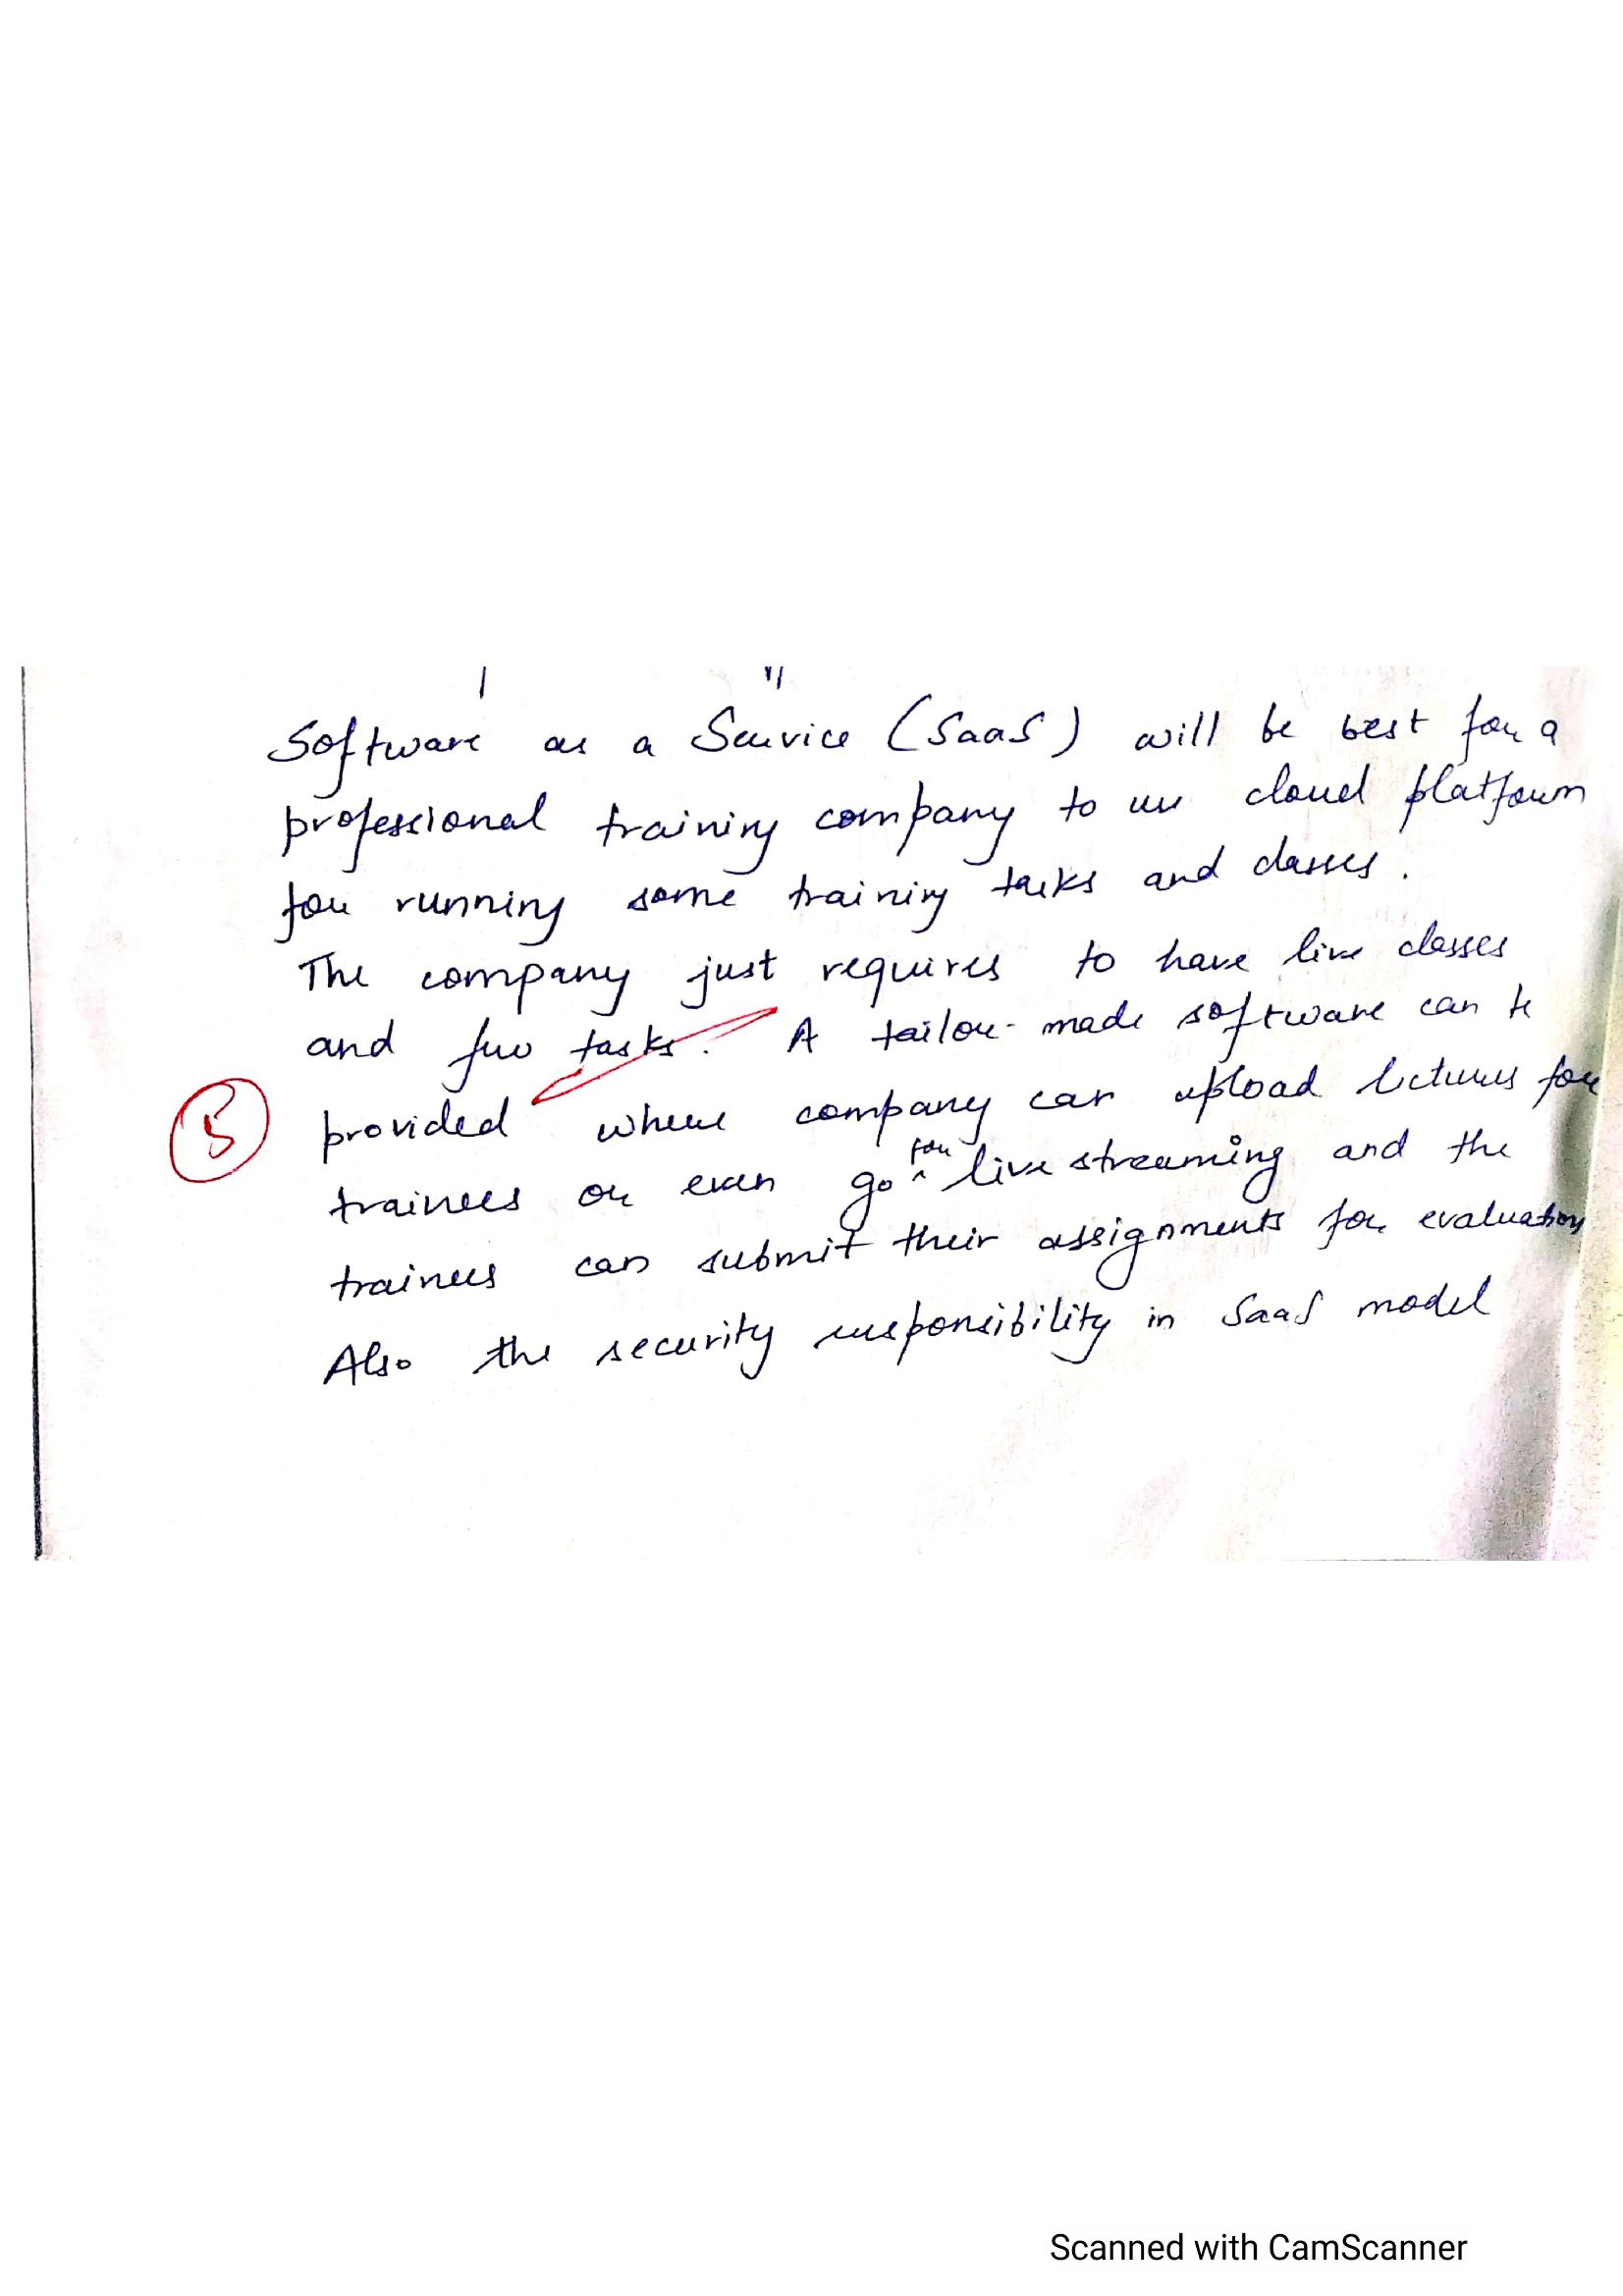 Software as a Service (SaaS) will be best for a
professional training company to use cloud platform
for running some training tasks and classes.
The company just requires to have live classes
and few tasks. A tailor-made software can be
5 provided where company can upload lectures for
trainees or even go for live streaming and the
trainees can submit their assignments for evaluation
Also the security responsibility in SaaS model
Scanned with CamScanner